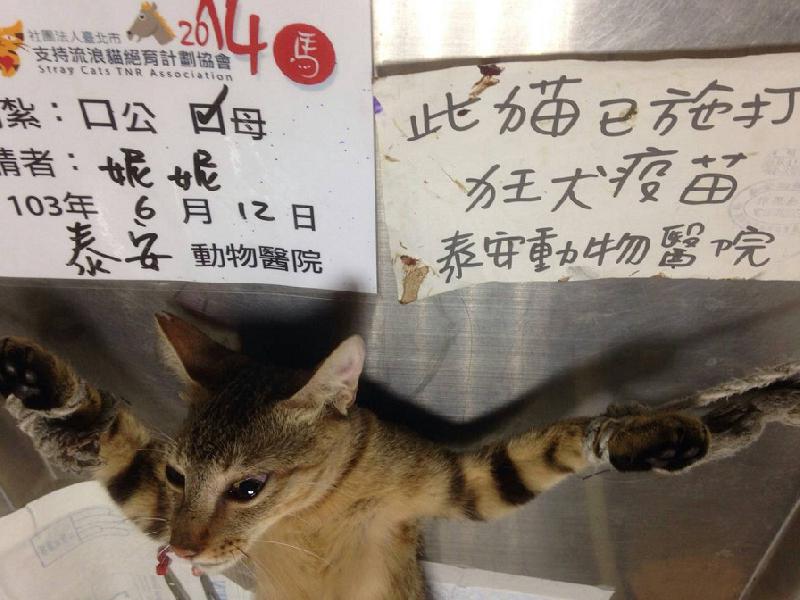 社團法人臺北市
支持流浪貓絕育計劃協會
Stray Cats TNR Association
2014
馬
紮：口公 ☑母
請者：妮妮
103年 6月12日
泰安 動物醫院
此猫已施打
狂犬疫苗
泰安動物醫院